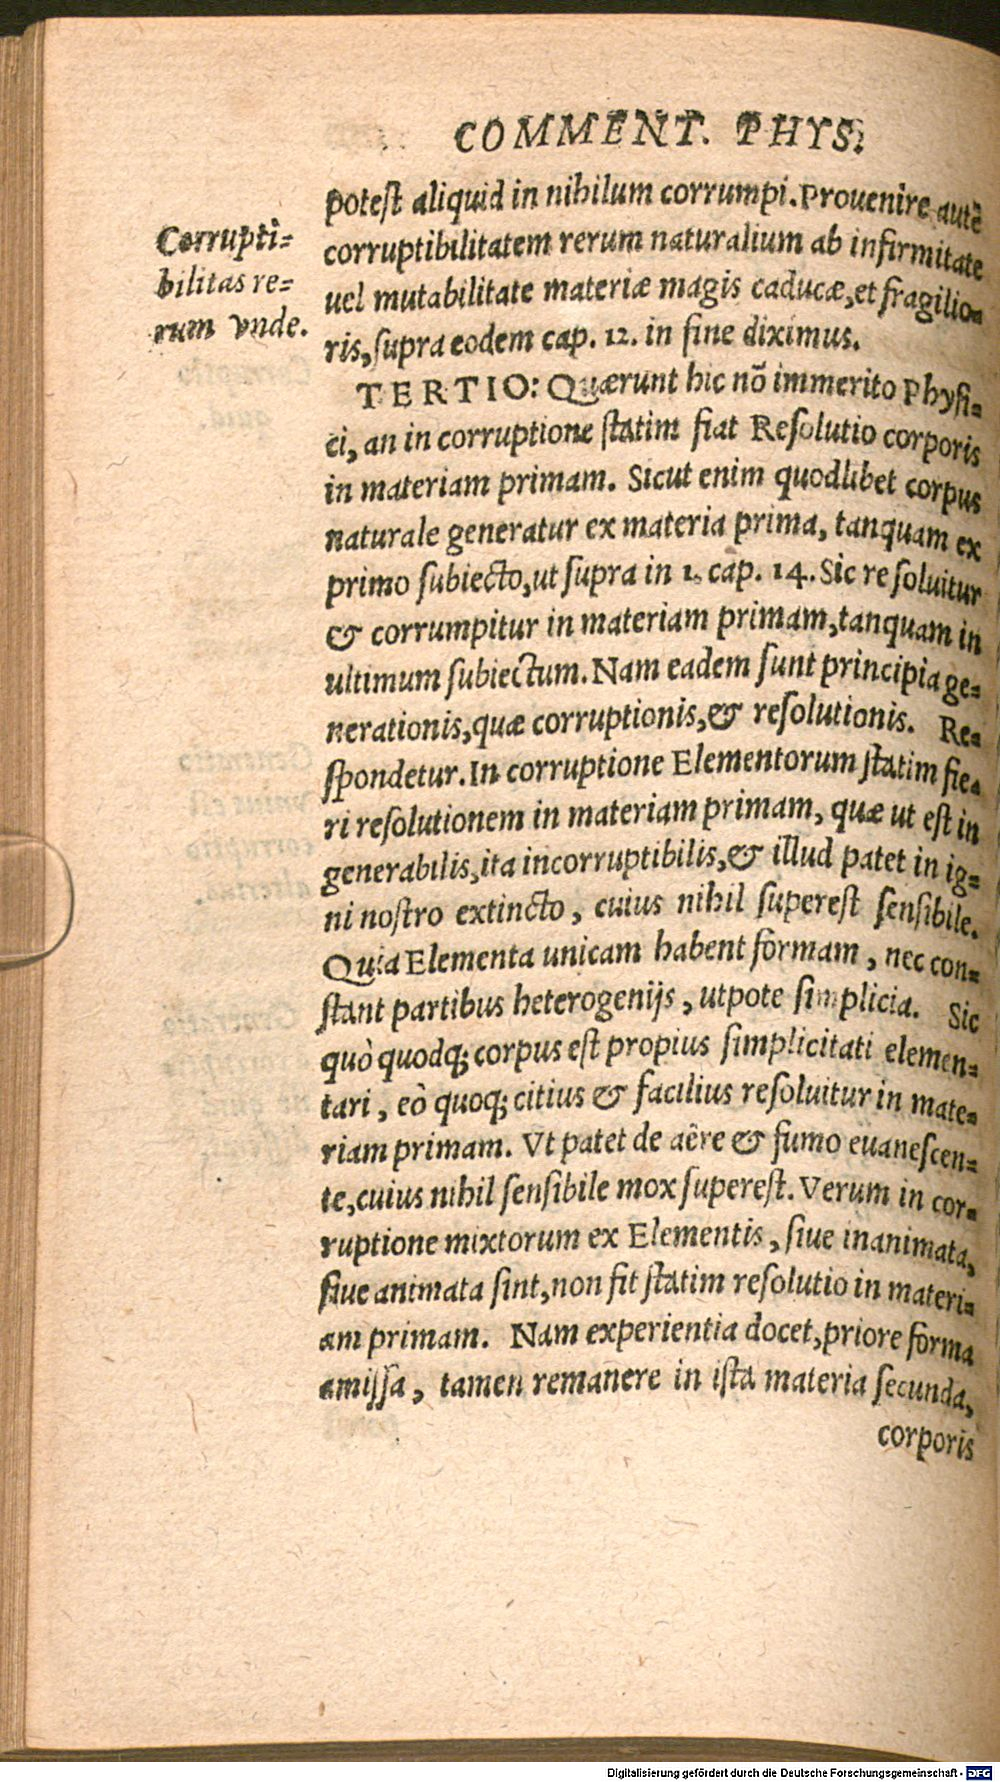 COMMENT. PHYS.
potest aliquid in nihilum corrumpi. Prouenire autē
corruptibilitatem rerum naturalium ab infirmitate
uel mutabilitate materiæ magis caducæ, et fragilio-
ris, supra eodem cap. 12. in fine diximus.
Corrupti-
bilitas re-
rum vnde.
TERTIO: Quærunt hic nō immerito Physi-
ci, an in corruptione statim fiat Resolutio corporis
in materiam primam. Sicut enim quodlibet corpus
naturale generatur ex materia prima, tanquam ex
primo subiecto, ut supra in 1. cap. 14. Sic resoluitur
& corrumpitur in materiam primam, tanquam in
ultimum subiectum. Nam eadem sunt principia ge-
nerationis, quæ corruptionis, & resolutionis. Re-
spondetur. In corruptione Elementorum statim fie-
ri resolutionem in materiam primam, quæ ut est in
generabilis, ita incorruptibilis, & illud patet in ig-
ni nostro extincto, cuius nihil superest sensibile.
Quia Elementa unicam habent formam, nec con-
stant partibus heterogenijs, utpote simplicia. Sic
quò quodq; corpus est propius simplicitati elemen-
tari, eò quoq; citius & facilius resoluitur in mate-
riam primam. Vt patet de aëre & fumo euanescen-
te, cuius nihil sensibile mox superest. Verum in cor-
ruptione mixtorum ex Elementis, siue inanimata,
siue animata sint, non fit statim resolutio in materi-
am primam. Nam experientia docet, priore forma
amissa, tamen remanere in ista materia secunda,
corporis
Digitalisierung gefördert durch die Deutsche Forschungsgemeinschaft - DFG